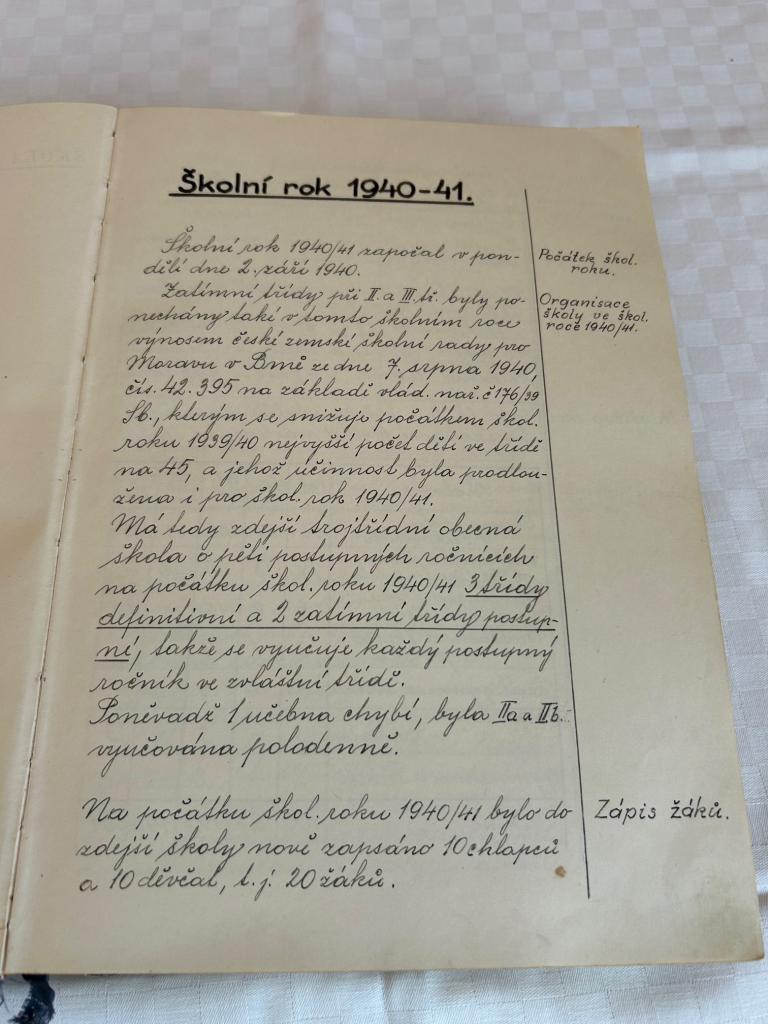 Školní rok 1940-41.
Školní rok 1940/41 započal v pon-
dělí dne 2. září 1940.
Počátek škol.
roku.
Zatímní třídy při II. a III. tř. byly po-
nechány také v tomto školním roce
výnosem české zemské školní rady pro
Moravu v Brně ze dne 7. srpna 1940,
čís. 42.395 na základě vlád. nař. č 176/39
Sb., kterým se snižuje počátkem škol.
roku 1939/40 nejvyšší počet dětí ve třídě
na 45, a jehož účinnost byla prodlou-
žena i pro škol. rok 1940/41.
Organisace
školy ve škol.
roce 1940/41.
Má tedy zdejší trojtřídní obecná
škola o pěti postupných ročnících
na počátku škol. roku 1940/41 3 třídy
definitivní a 2 zatímní třídy postup-
ní, takže se vyučuje každý postupný
ročník ve zvláštní třídě.
Poněvadž 1 učebna chybí, byla II a a II b.
vyučována polodenně.
Na počátku škol. roku 1940/41 bylo do
zdejší školy nově zapsáno 10 chlapců
a 10 děvčat, t. j. 20 žáků.
Zápis žáků.